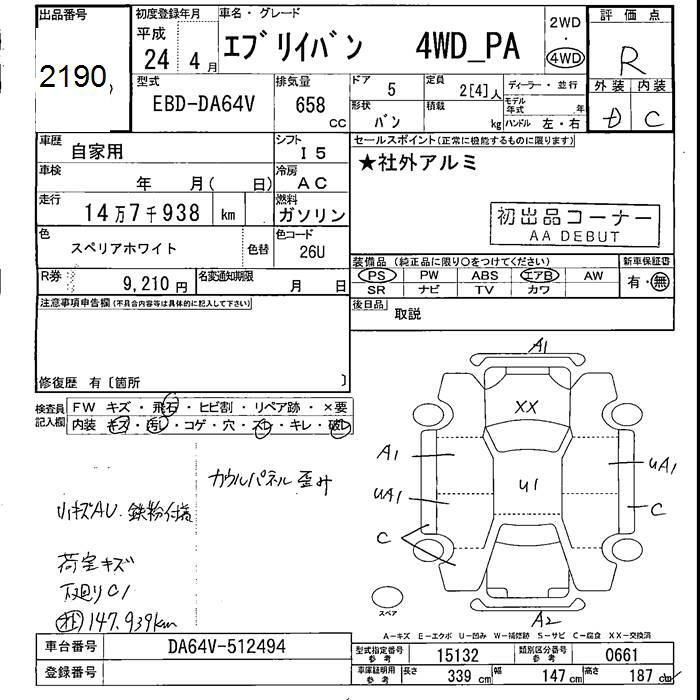 出品番号
2190
初度登録年月
平成
24年 4月
車名・グレード
エブリイバン 4WD_PA
2WD
・
4WD
評価点
R
外装 内装
D C
型式
EBD-DA64V
排気量
658 CC
ドア
5
定員
2[4]人
形状
バン
積載
kg
ディーラー・並行
モデル年式 年
ハンドル 左・右
車歴
自家用
シフト
I 5
車検
年 月( 日)
冷房
AC
走行
14万7千938 km
燃料
ガソリン
色
スペリアホワイト
色替
色コード
26U
R券
9,210円
名変通知期限
月 日
セールスポイント(正常に機能するものに限ります)
★社外アルミ
初出品コーナー
AA DEBUT
装備品(純正品に限り○をつけてください)
新車保証書
PS PW ABS エアB AW
SR ナビ TV カワ
有・無
後日品
取説
注意事項申告欄(不具合内容等は具体的に記入して下さい)
修復歴 有〔箇所 〕
検査員記入欄
FW キズ・飛石・ヒビ割・リペア跡・×要
内装 キズ・汚れ・コゲ・穴・スレ・キレ・破れ
カウルパネル歪み
小キズAU 鉄粉付着
荷室キズ
下廻りC1
147,939km
A1
XX
A1
U1
UA1
UA1
C
C
スペア
A2
A-キズ E-エクボ U-凹み W-補修跡 S-サビ C-腐食 XX-交換済
車台番号
DA64V-512494
登録番号
型式指定番号
参考
15132
類別区分番号
参考
0661
車庫証明用
参考
長さ
339 cm
幅
147 cm
高さ
187 cm